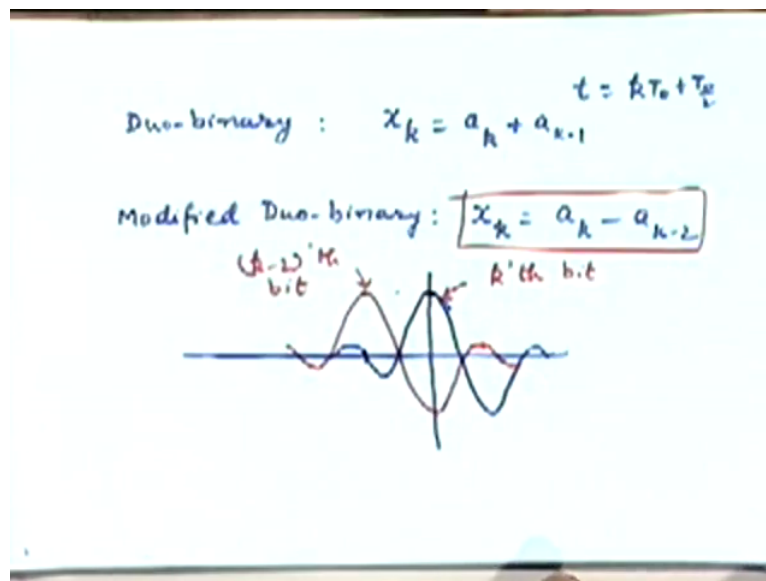 t = kT₀ + T₀/2
Duo-binary : xₖ = aₖ + aₖ₋₁
Modified Duo-binary : xₖ = aₖ - aₖ₋₂
(k-2)'th bit
k'th bit